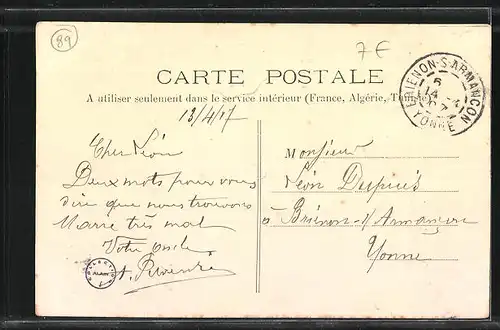 89
7 €
CARTE POSTALE
A utiliser seulement dans le service intérieur (France, Algérie, Tunisie)
13/4/17
BRIENON-S-ARMANÇON
YONNE
6
14 -4
Cher Léon
Deux mots pour vous
dire que nous trouvons
Marie très mal
Votre oncle
A.
Monsieur
Léon Dupuis
à Brienon s/ Armançon
Yonne